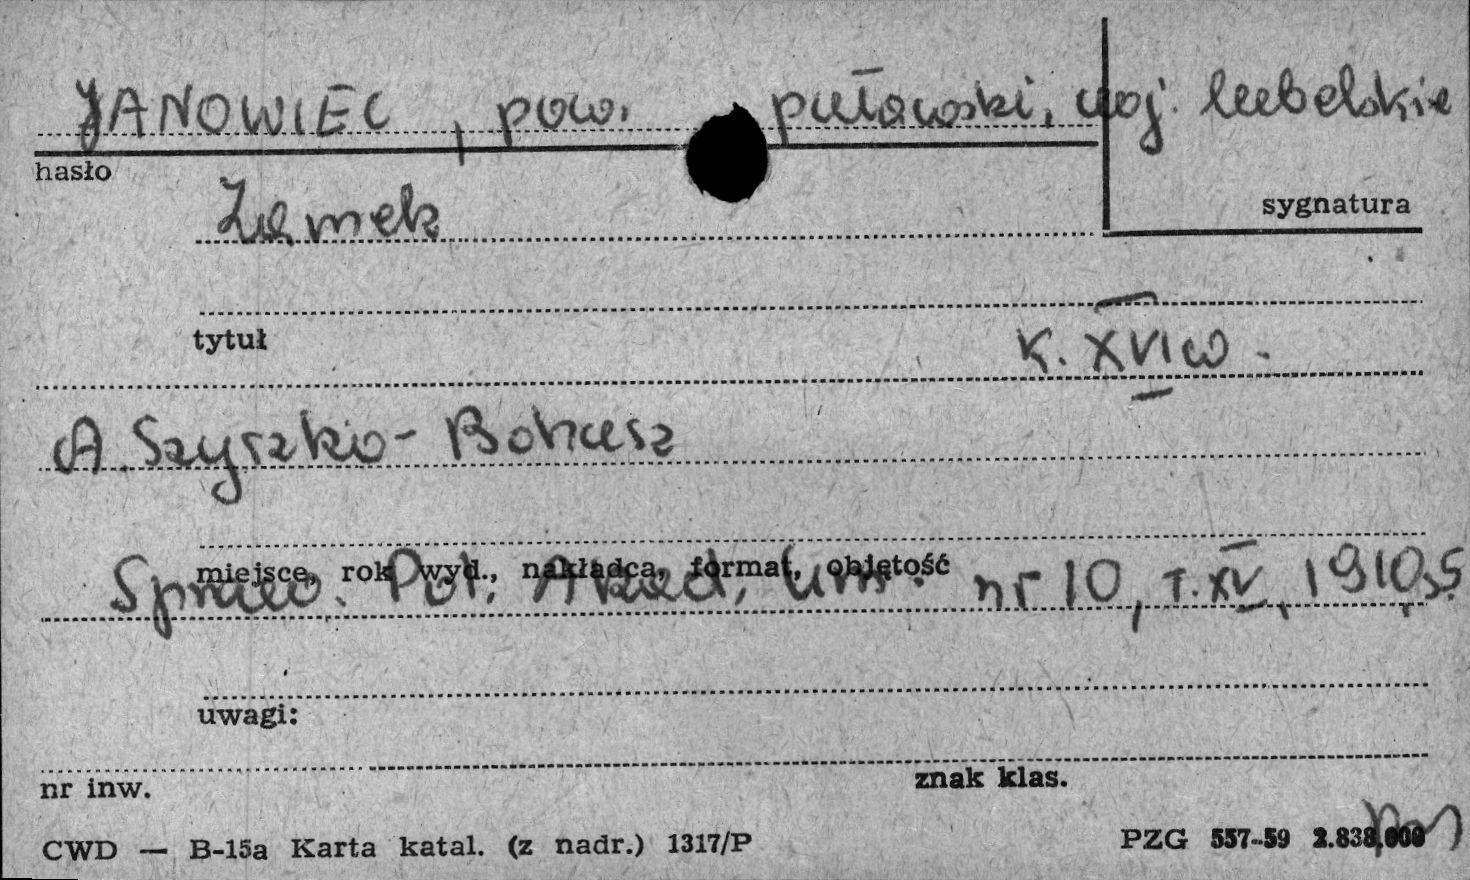 JANOWIEC, pow. puławski, woj. lubelskie
hasło
Zamek
sygnatura
tytuł
K. XVI w.
A. Szyszko-Bohusz
miejsce, rok wyd., nakładca, format, objętość
Spraw. Pol. Akad. Um. nr 10, T. XV, 1910, s.
uwagi:
nr inw.
znak klas.
CWD — B-15a Karta katal. (z nadr.) 1317/P
PZG 557-59 2.838.000